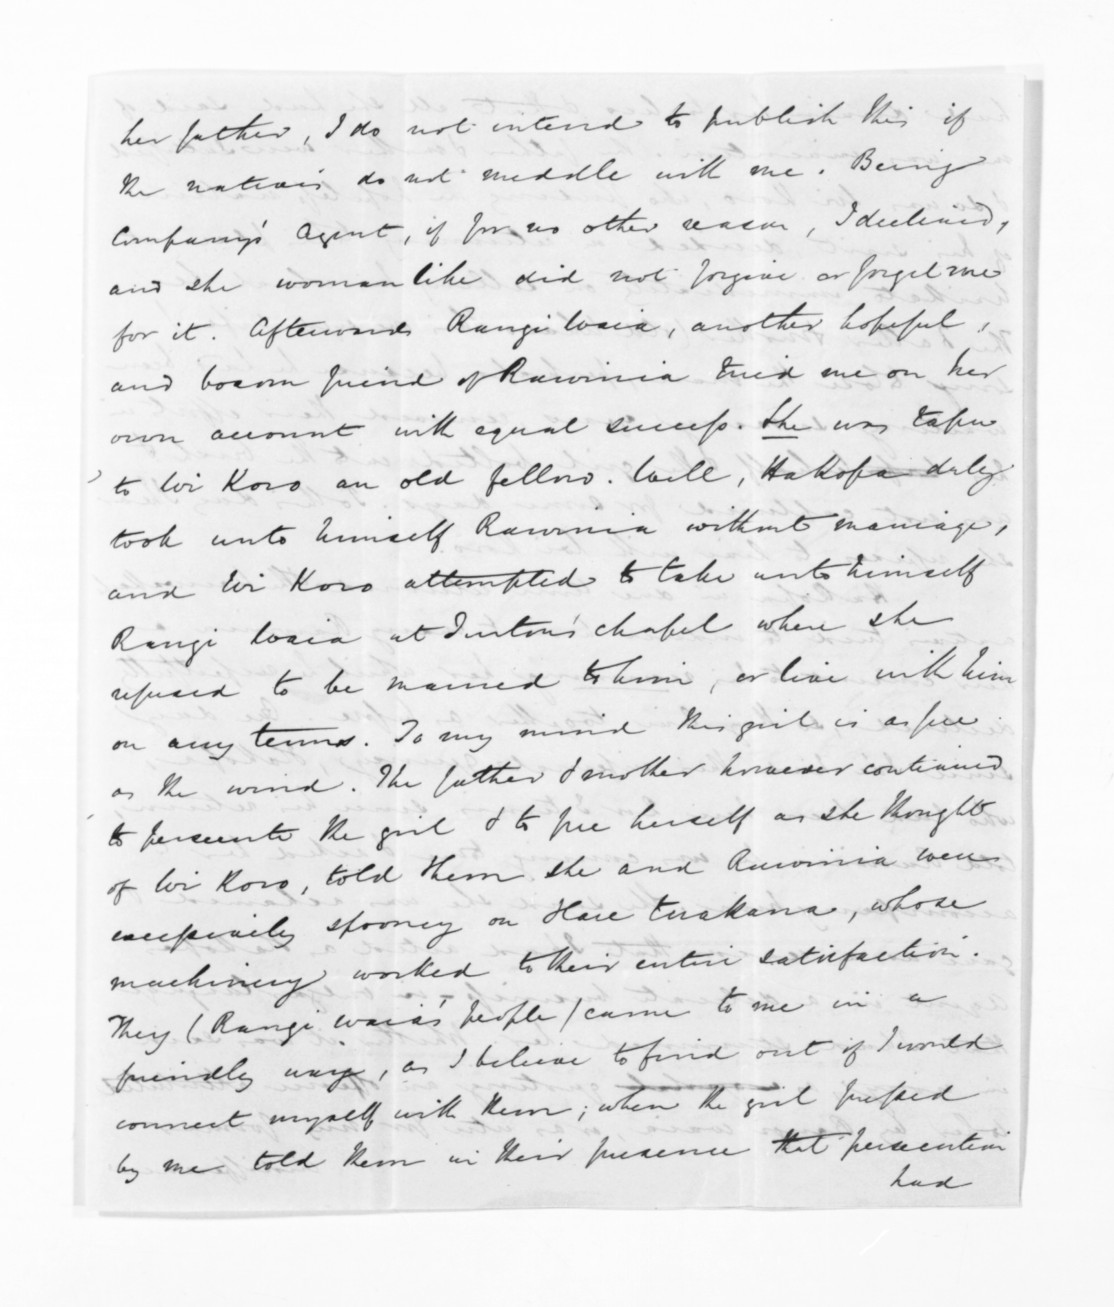 her father, I do not intend to publish this if
the natives do not meddle with me. Being
Company's Agent, if for no other reason, I declined,
and she woman like did not forgive or forget me
for it. Afterwards Rangi Waia, another hopeful,
and bosom friend of Rawinia tried me on her
own account with equal success. She was tapu
to Wi Koro an old fellow. Well, Hakopa duly
took unto himself Rawinia without marriage,
and Wi Koro attempted to take unto himself
Rangi Waia at Turton's chapel where she
refused to be married to him, or live with him
on any terms. To my mind this girl is as free
as the wind. The father & mother however continued
to persecute the girl & to free herself as she thought
of Wi Koro, told them she and Rawinia were
excessively spooney on Hare, whose
machinery worked to their entire satisfaction.
They (Rangi Waia's people) came to me in a
friendly way, as I believe to find out if I would
connect myself with them; when the girl pressed
by me told them in their presence that persecution
had